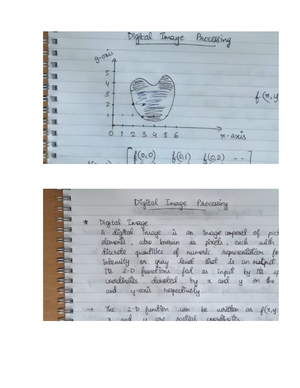 Digital Image Processing
y-axis
5
4
3
2
1
f(x, y
0 1 2 3 4 5 6
x-axis
f(0,0) f(0,1) f(0,2) --
Digital Image Processing
* Digital Image
A digital Image is an Image composed of
elements, also known as pixels, each with
discrete quantities of numeric representation for
intensity or gray level that is an output
Its 2-D functions fed as input by its
coordinates denoted by x and y on the
and y-axis respectively.
→ The 2-D function can be written as f(x,y
x and y are spatial coordinates